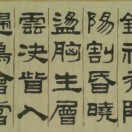 鍾神秀陰
陽割昏曉
盪胸生層
雲決眥入
歸鳥會當